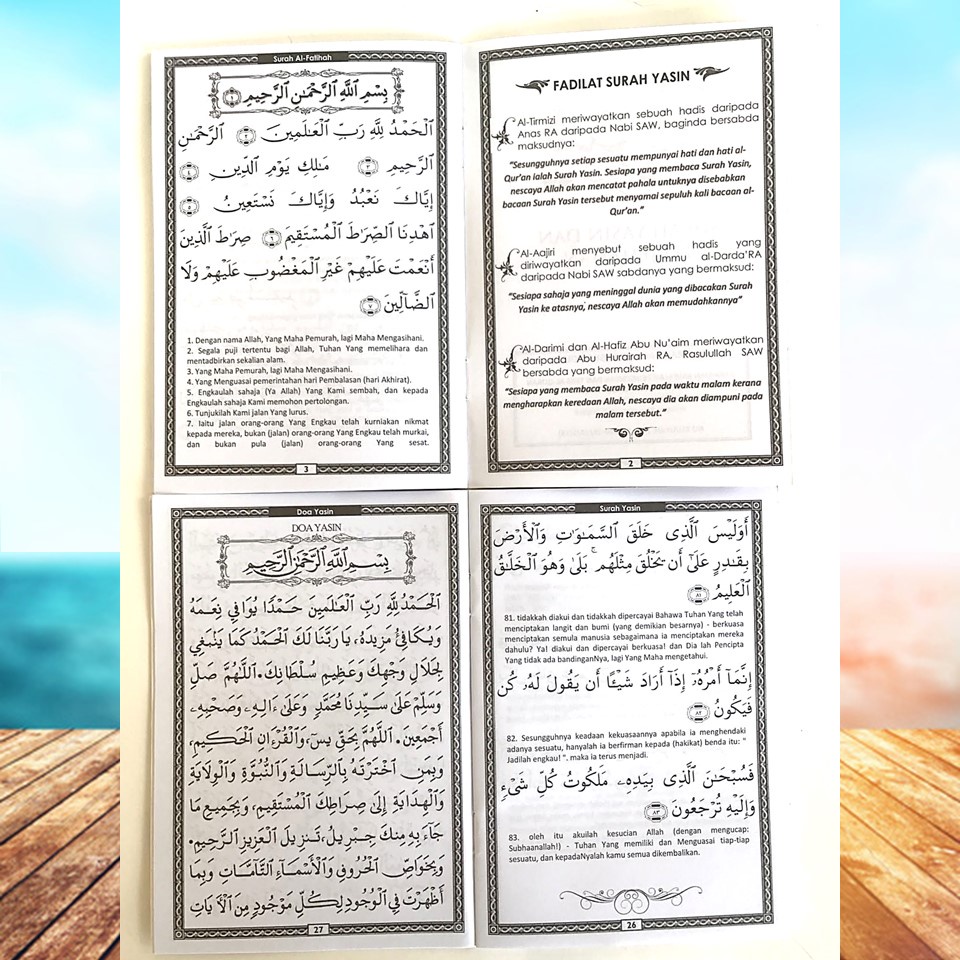 Surah Al-Fatihah
بِسْمِ ٱللَّهِ ٱلرَّحْمَٰنِ ٱلرَّحِيمِ ١
ٱلْحَمْدُ لِلَّهِ رَبِّ ٱلْعَٰلَمِينَ ٢ ٱلرَّحْمَٰنِ
ٱلرَّحِيمِ ٣ مَٰلِكِ يَوْمِ ٱلدِّينِ ٤
إِيَّاكَ نَعْبُدُ وَإِيَّاكَ نَسْتَعِينُ ٥
ٱهْدِنَا ٱلصِّرَٰطَ ٱلْمُسْتَقِيمَ ٦ صِرَٰطَ ٱلَّذِينَ
أَنْعَمْتَ عَلَيْهِمْ غَيْرِ ٱلْمَغْضُوبِ عَلَيْهِمْ وَلَا
ٱلضَّآلِّينَ ٧
1. Dengan nama Allah, Yang Maha Pemurah, lagi Maha Mengasihani.
2. Segala puji tertentu bagi Allah, Tuhan Yang memelihara dan
mentadbirkan sekalian alam.
3. Yang Maha Pemurah, lagi Maha Mengasihani.
4. Yang Menguasai pemerintahan hari Pembalasan (hari Akhirat).
5. Engkaulah sahaja (Ya Allah) Yang Kami sembah, dan kepada
Engkaulah sahaja Kami memohon pertolongan.
6. Tunjukilah Kami jalan Yang lurus.
7. Iaitu jalan orang-orang Yang Engkau telah kurniakan nikmat
kepada mereka, bukan (jalan) orang-orang Yang Engkau telah murkai,
dan bukan pula (jalan) orang-orang Yang sesat.
3
FADILAT SURAH YASIN
Al-Tirmizi meriwayatkan sebuah hadis daripada
Anas RA daripada Nabi SAW, baginda bersabda
maksudnya:
“Sesungguhnya setiap sesuatu mempunyai hati dan hati al-
Qur’an ialah Surah Yasin. Sesiapa yang membaca Surah Yasin,
nescaya Allah akan mencatat pahala untuknya disebabkan
bacaan Surah Yasin tersebut menyamai sepuluh kali bacaan al-
Qur’an.”
Al-Aajiri menyebut sebuah hadis yang
diriwayatkan daripada Ummu al-Darda’RA
daripada Nabi SAW sabdanya yang bermaksud:
“Sesiapa sahaja yang meninggal dunia yang dibacakan Surah
Yasin ke atasnya, nescaya Allah akan memudahkannya”
Al-Darimi dan Al-Hafiz Abu Nu’aim meriwayatkan
daripada Abu Hurairah RA, Rasulullah SAW
bersabda yang bermaksud:
“Sesiapa yang membaca Surah Yasin pada waktu malam kerana
mengharapkan keredaan Allah, nescaya dia akan diampuni pada
malam tersebut.”
2
Doa Yasin
DOA YASIN
بِسْمِ ٱللَّهِ ٱلرَّحْمَٰنِ ٱلرَّحِيمِ
ٱلْحَمْدُ لِلَّهِ رَبِّ ٱلْعَٰلَمِينَ حَمْدًا يُوَافِي نِعَمَهُ
وَيُكَافِئُ مَزِيدَهُ، يَا رَبَّنَا لَكَ ٱلْحَمْدُ كَمَا يَنْبَغِي
لِجَلَالِ وَجْهِكَ وَعَظِيمِ سُلْطَانِكَ. اَللَّهُمَّ صَلِّ
وَسَلِّمْ عَلَىٰ سَيِّدِنَا مُحَمَّدٍ وَعَلَىٰ ءَالِهِ وَصَحْبِهِ
أَجْمَعِينَ. اَللَّهُمَّ بِحَقِّ يسٓ، وَٱلْقُرْءَانِ ٱلْحَكِيمِ،
وَبِمَنِ ٱخْتَرْتَهُ بِٱلرِّسَالَةِ وَٱلنُّبُوَّةِ وَٱلْوِلَايَةِ
وَٱلْهِدَايَةِ إِلَىٰ صِرَاطِكَ ٱلْمُسْتَقِيمِ، وَبِجَمِيعِ مَا
جَآءَ بِهِ مِنْكَ جِبْرِيلُ، تَنْزِيلَ ٱلْعَزِيزِ ٱلرَّحِيمِ.
وَبِخَوَاصِّ ٱلْحُرُوفِ وَٱلْأَسْمَآءِ ٱلتَّآمَّاتِ وَبِمَا
أَظْهَرْتَ فِي ٱلْوُجُودِ لِكُلِّ مَوْجُودٍ مِنَ ٱلْأَيَاتِ
27
Surah Yasin
أَوَلَيْسَ ٱلَّذِى خَلَقَ ٱلسَّمَٰوَٰتِ وَٱلْأَرْضَ
بِقَٰدِرٍ عَلَىٰٓ أَن يَخْلُقَ مِثْلَهُم ۚ بَلَىٰ وَهُوَ ٱلْخَلَّٰقُ
ٱلْعَلِيمُ ٨١
81. tidakkah diakui dan tidakkah dipercayai Bahawa Tuhan Yang telah
menciptakan langit dan bumi (yang demikian besarnya) - berkuasa
menciptakan semula manusia sebagaimana ia menciptakan mereka
dahulu? Ya! diakui dan dipercayai berkuasa! dan Dia lah Pencipta
Yang tidak ada bandinganNya, lagi Yang Maha mengetahui.
إِنَّمَآ أَمْرُهُۥٓ إِذَآ أَرَادَ شَيْـًٔا أَن يَقُولَ لَهُۥ كُن
فَيَكُونُ ٨٢
82. Sesungguhnya keadaan kekuasaannya apabila ia menghendaki
adanya sesuatu, hanyalah ia berfirman kepada (hakikat) benda itu: "
Jadilah engkau! ". maka ia terus menjadi.
فَسُبْحَٰنَ ٱلَّذِى بِيَدِهِۦ مَلَكُوتُ كُلِّ شَىْءٍ
وَإِلَيْهِ تُرْجَعُونَ ٨٣
83. oleh itu akuilah kesucian Allah (dengan mengucap:
Subhaanallah!) - Tuhan Yang memiliki dan Menguasai tiap-tiap
sesuatu, dan kepadaNyalah kamu semua dikembalikan.
26